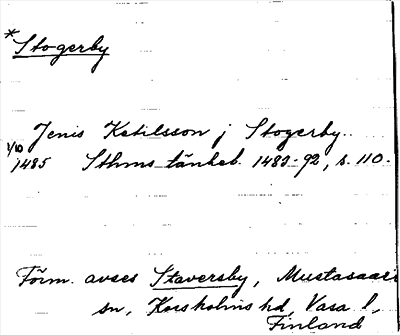 *Stogerby
Jenis Ketilsson j Stogerby.
1/10 1485 Sthms tänkeb. 1483-92, s. 110.
Förm. avses Staversby, Mustasaari
sn, Korsholms hd, Vasa l,
Finland